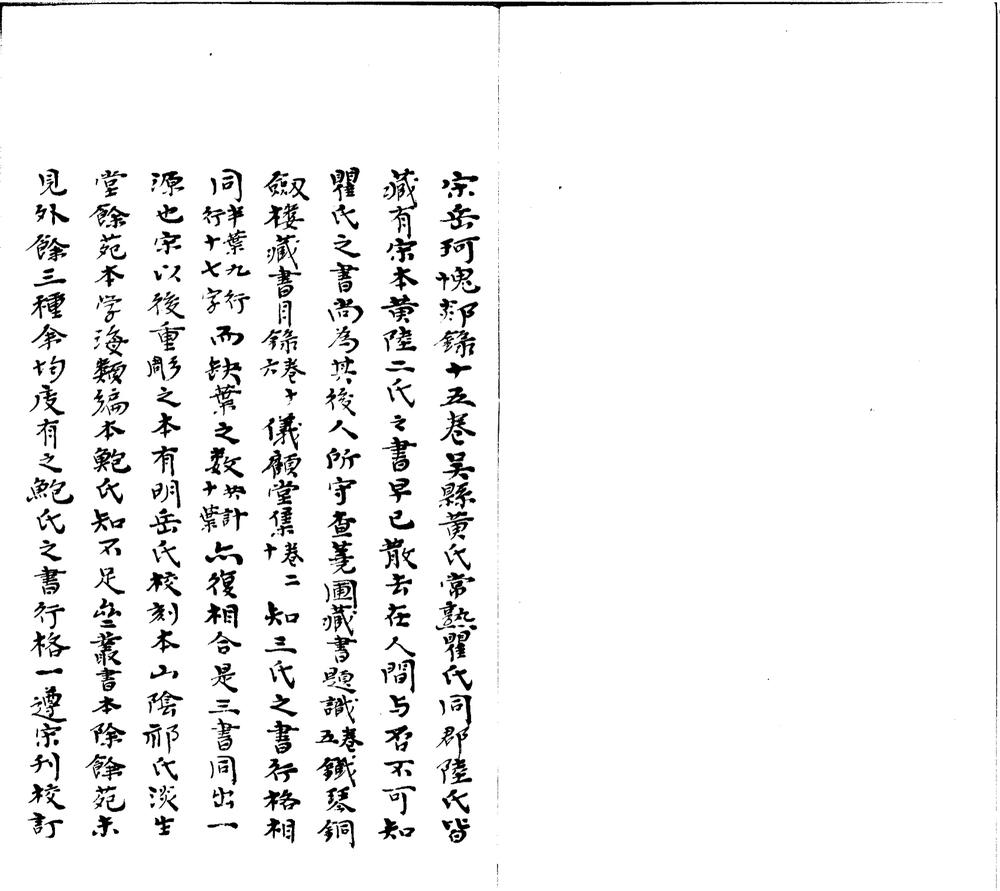 宋岳珂愧郯錄十五卷吳縣黃氏常熟瞿氏同郡陸氏皆
藏有宋本黃陸二氏之書早已散去在人間与否不可知
瞿氏之書尚為其後人所守查蕘圃藏書題識卷五鐵琴銅
劔樓藏書目錄卷十六儀顧堂集卷二十知三氏之書行格相
同半葉九行行十七字而缺葉之數共計十葉亦復相合是三書同出一
源也宋以後重彫之本有明岳氏校刻本山陰祁氏淡生
堂餘苑本学海類編本鮑氏知不足齋叢書本除餘苑未
見外餘三種余均庋有之鮑氏之書行格一遵宋刊校訂